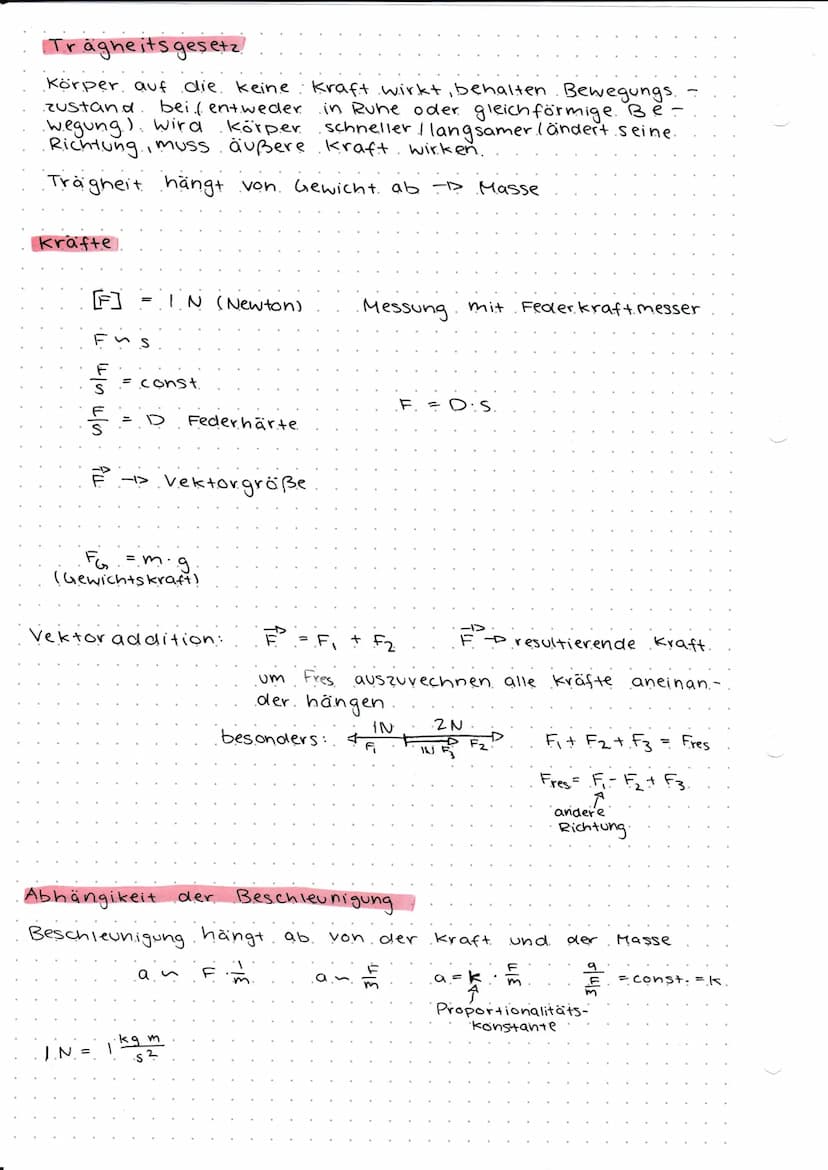 Trägheitsgesetz
Körper auf die keine Kraft wirkt, behalten Bewegungs-
zustand bei (entweder in Ruhe oder gleichförmige Be-
wegung). Wird Körper schneller / langsamer / ändert seine
Richtung, muss äußere Kraft wirken.
Trägheit hängt von Gewicht ab → Masse
Kräfte
[F] = 1 N (Newton) Messung mit Federkraftmesser
F ~ s
F/s = const.
F = D · s
F/s = D Federhärte
F⃗ → Vektorgröße
F_G = m · g
(Gewichtskraft)
Vektoraddition: F⃗ = F₁ + F₂ F⃗ → resultierende Kraft
um Fres auszuvechnen alle Kräfte aneinan-
der hängen
1N 2N
besonders: F₁ 1N F₃ F₂ F₁ + F₂ + F₃ = Fres
Fres = F₁ - F₂ + F₃
andere
Richtung
Abhängikeit der Beschleunigung
Beschleunigung hängt ab von der Kraft und der Masse
a ~ F · 1/m a ~ F/m a = k · F/m a/(F/m) = const. = k
Proportionalitäts-
konstante
1 N = 1 kg m/s²